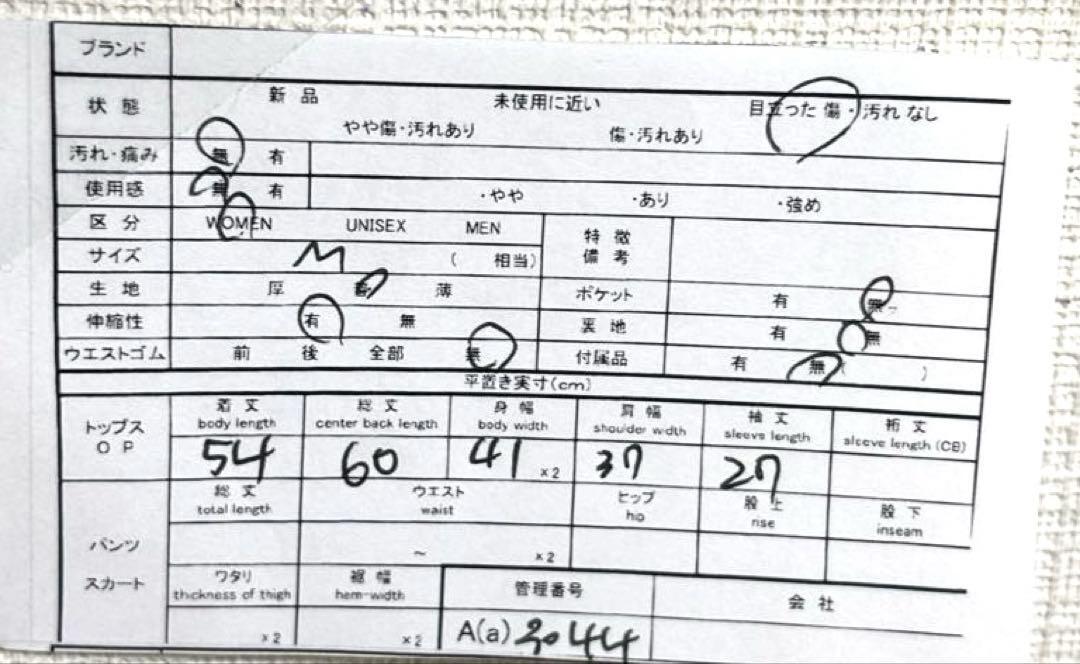 ブランド
状態 新品 未使用に近い 目立った傷・汚れなし
やや傷・汚れあり 傷・汚れあり
汚れ・痛み 無 有
使用感 無 有 ・やや ・あり ・強め
区分 WOMEN UNISEX MEN 特徴
備考
サイズ M ( 相当)
生地 厚 普 薄 ポケット 有 無
伸縮性 有 無 裏地 有 無
ウエストゴム 前 後 全部 無 付属品 有 無 ( )
平置き実寸(cm)
トップス
OP
着丈 総丈 身幅 肩幅 袖丈 裄丈
body length center back length body width shoulder width sleeve length sleeve length (CB)
54 60 41 ×2 37 27
パンツ
スカート
総丈 ウエスト ヒップ 股上 股下
total length waist hip rise inseam
~ ×2
ワタリ 裾幅 管理番号 会社
thickness of thigh hem-width
×2 ×2 A(a) 3044